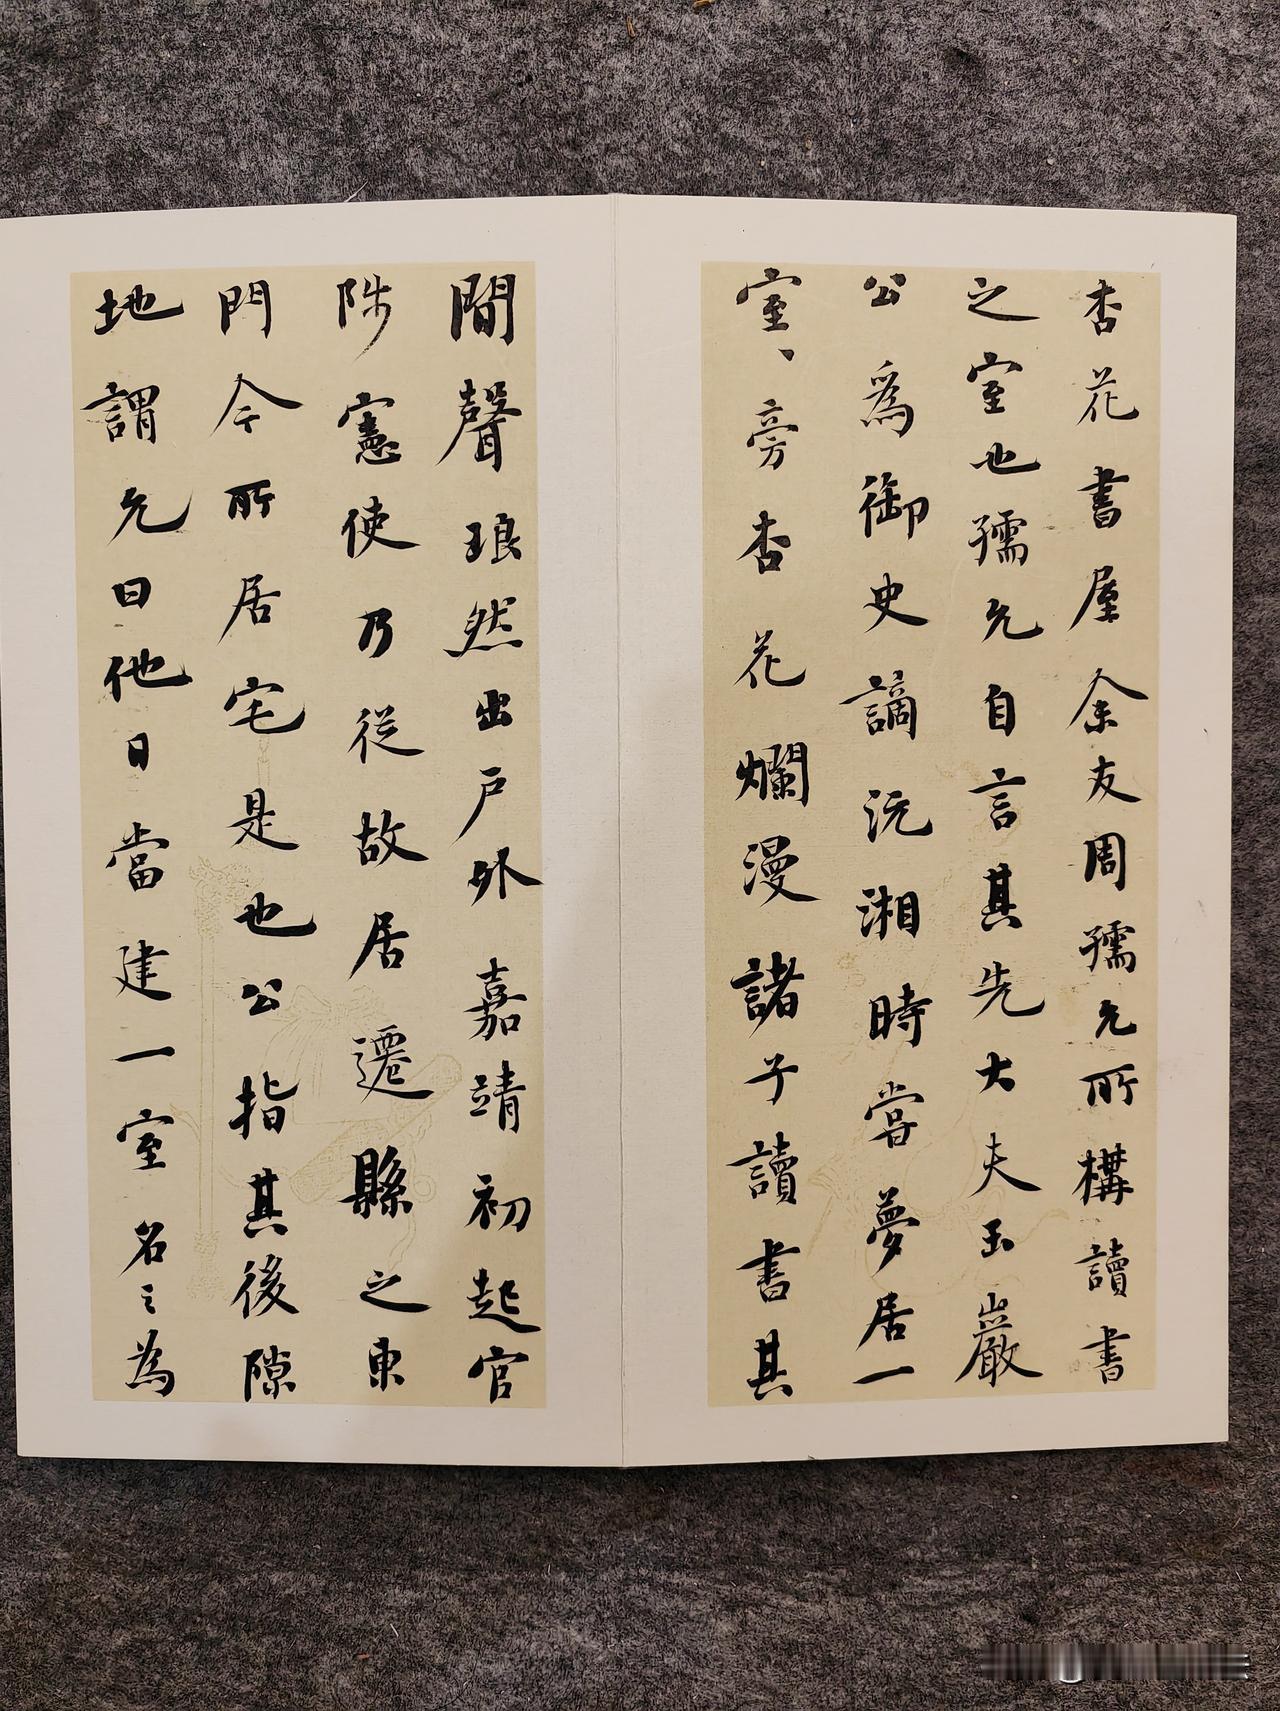 杏花書屋余友周孺允所構讀書
之室也孺允自言其先大夫玉巖
公爲御史謫沅湘時嘗夢居一
室、旁杏花爛漫諸子讀書其
間聲琅然出戶外嘉靖初起官
陟憲使乃從故居遷縣之東
門今所居宅是也公指其後隙
地謂允曰他日當建一室名之為